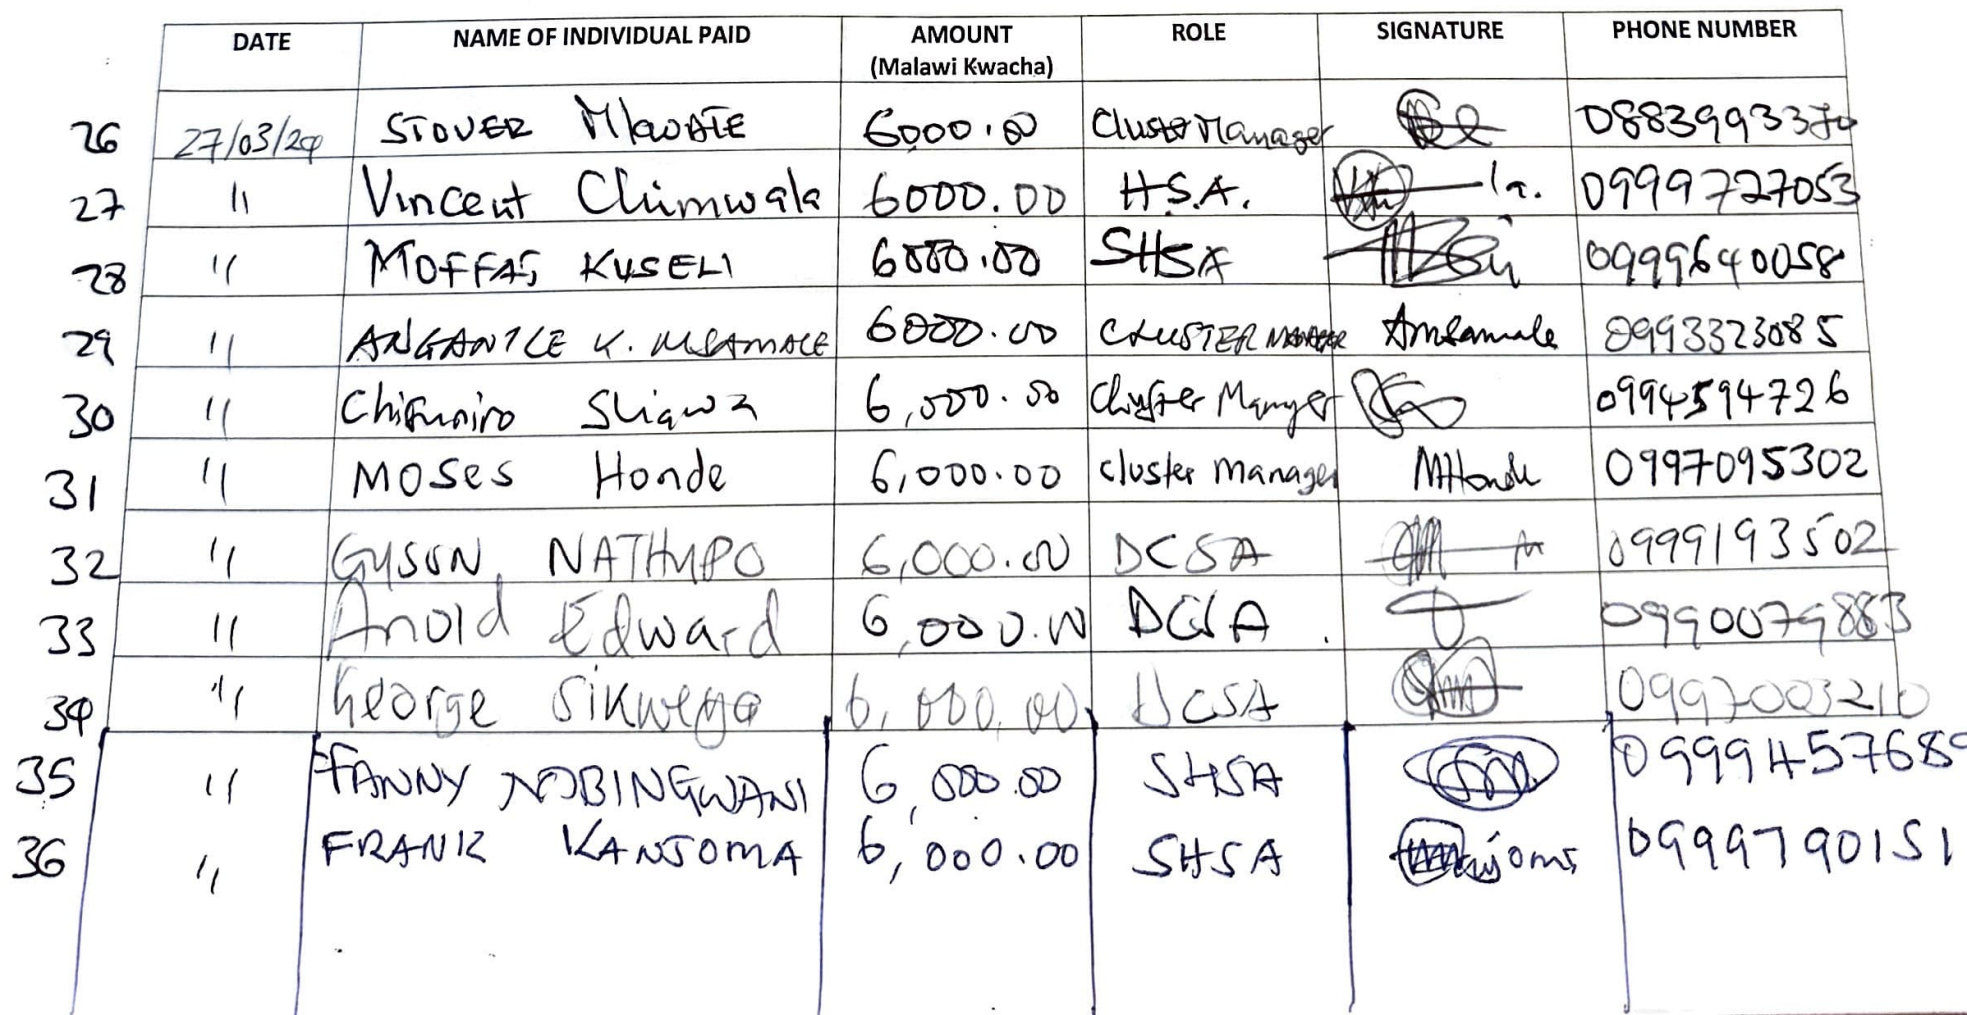 DATE NAME OF INDIVIDUAL PAID AMOUNT (Malawi Kwacha) ROLE SIGNATURE PHONE NUMBER
26 27/03/24 STOVER 6000.00 Cluster Manager
27 " Vincent Chimwala 6000.00 H.S.A. 0999727053
28 " MOFFAS KUSELI 6000.00 SHSA 0999640058
29 " ANGANILE K. MSAMALE 6000.00 CLUSTER MANAGER Amsamale 0993323085
30 " Chifuniro 6,000.00 Cluster Manager 0994594726
31 " MOSES Honde 6,000.00 cluster manager MHonde 0997095302
32 " GYSON NATHUPO 6,000.00 DCSA 0999193502
33 " Anold Edward 6,000.00 DCSA
34 " George Sikweya 6,000.00 DCSA 0997003210
35 " FANNY NOBINGWANI 6,000.00 SHSA 0999457689
36 " FRANK KANJOMA 6,000.00 SHSA 0999790151